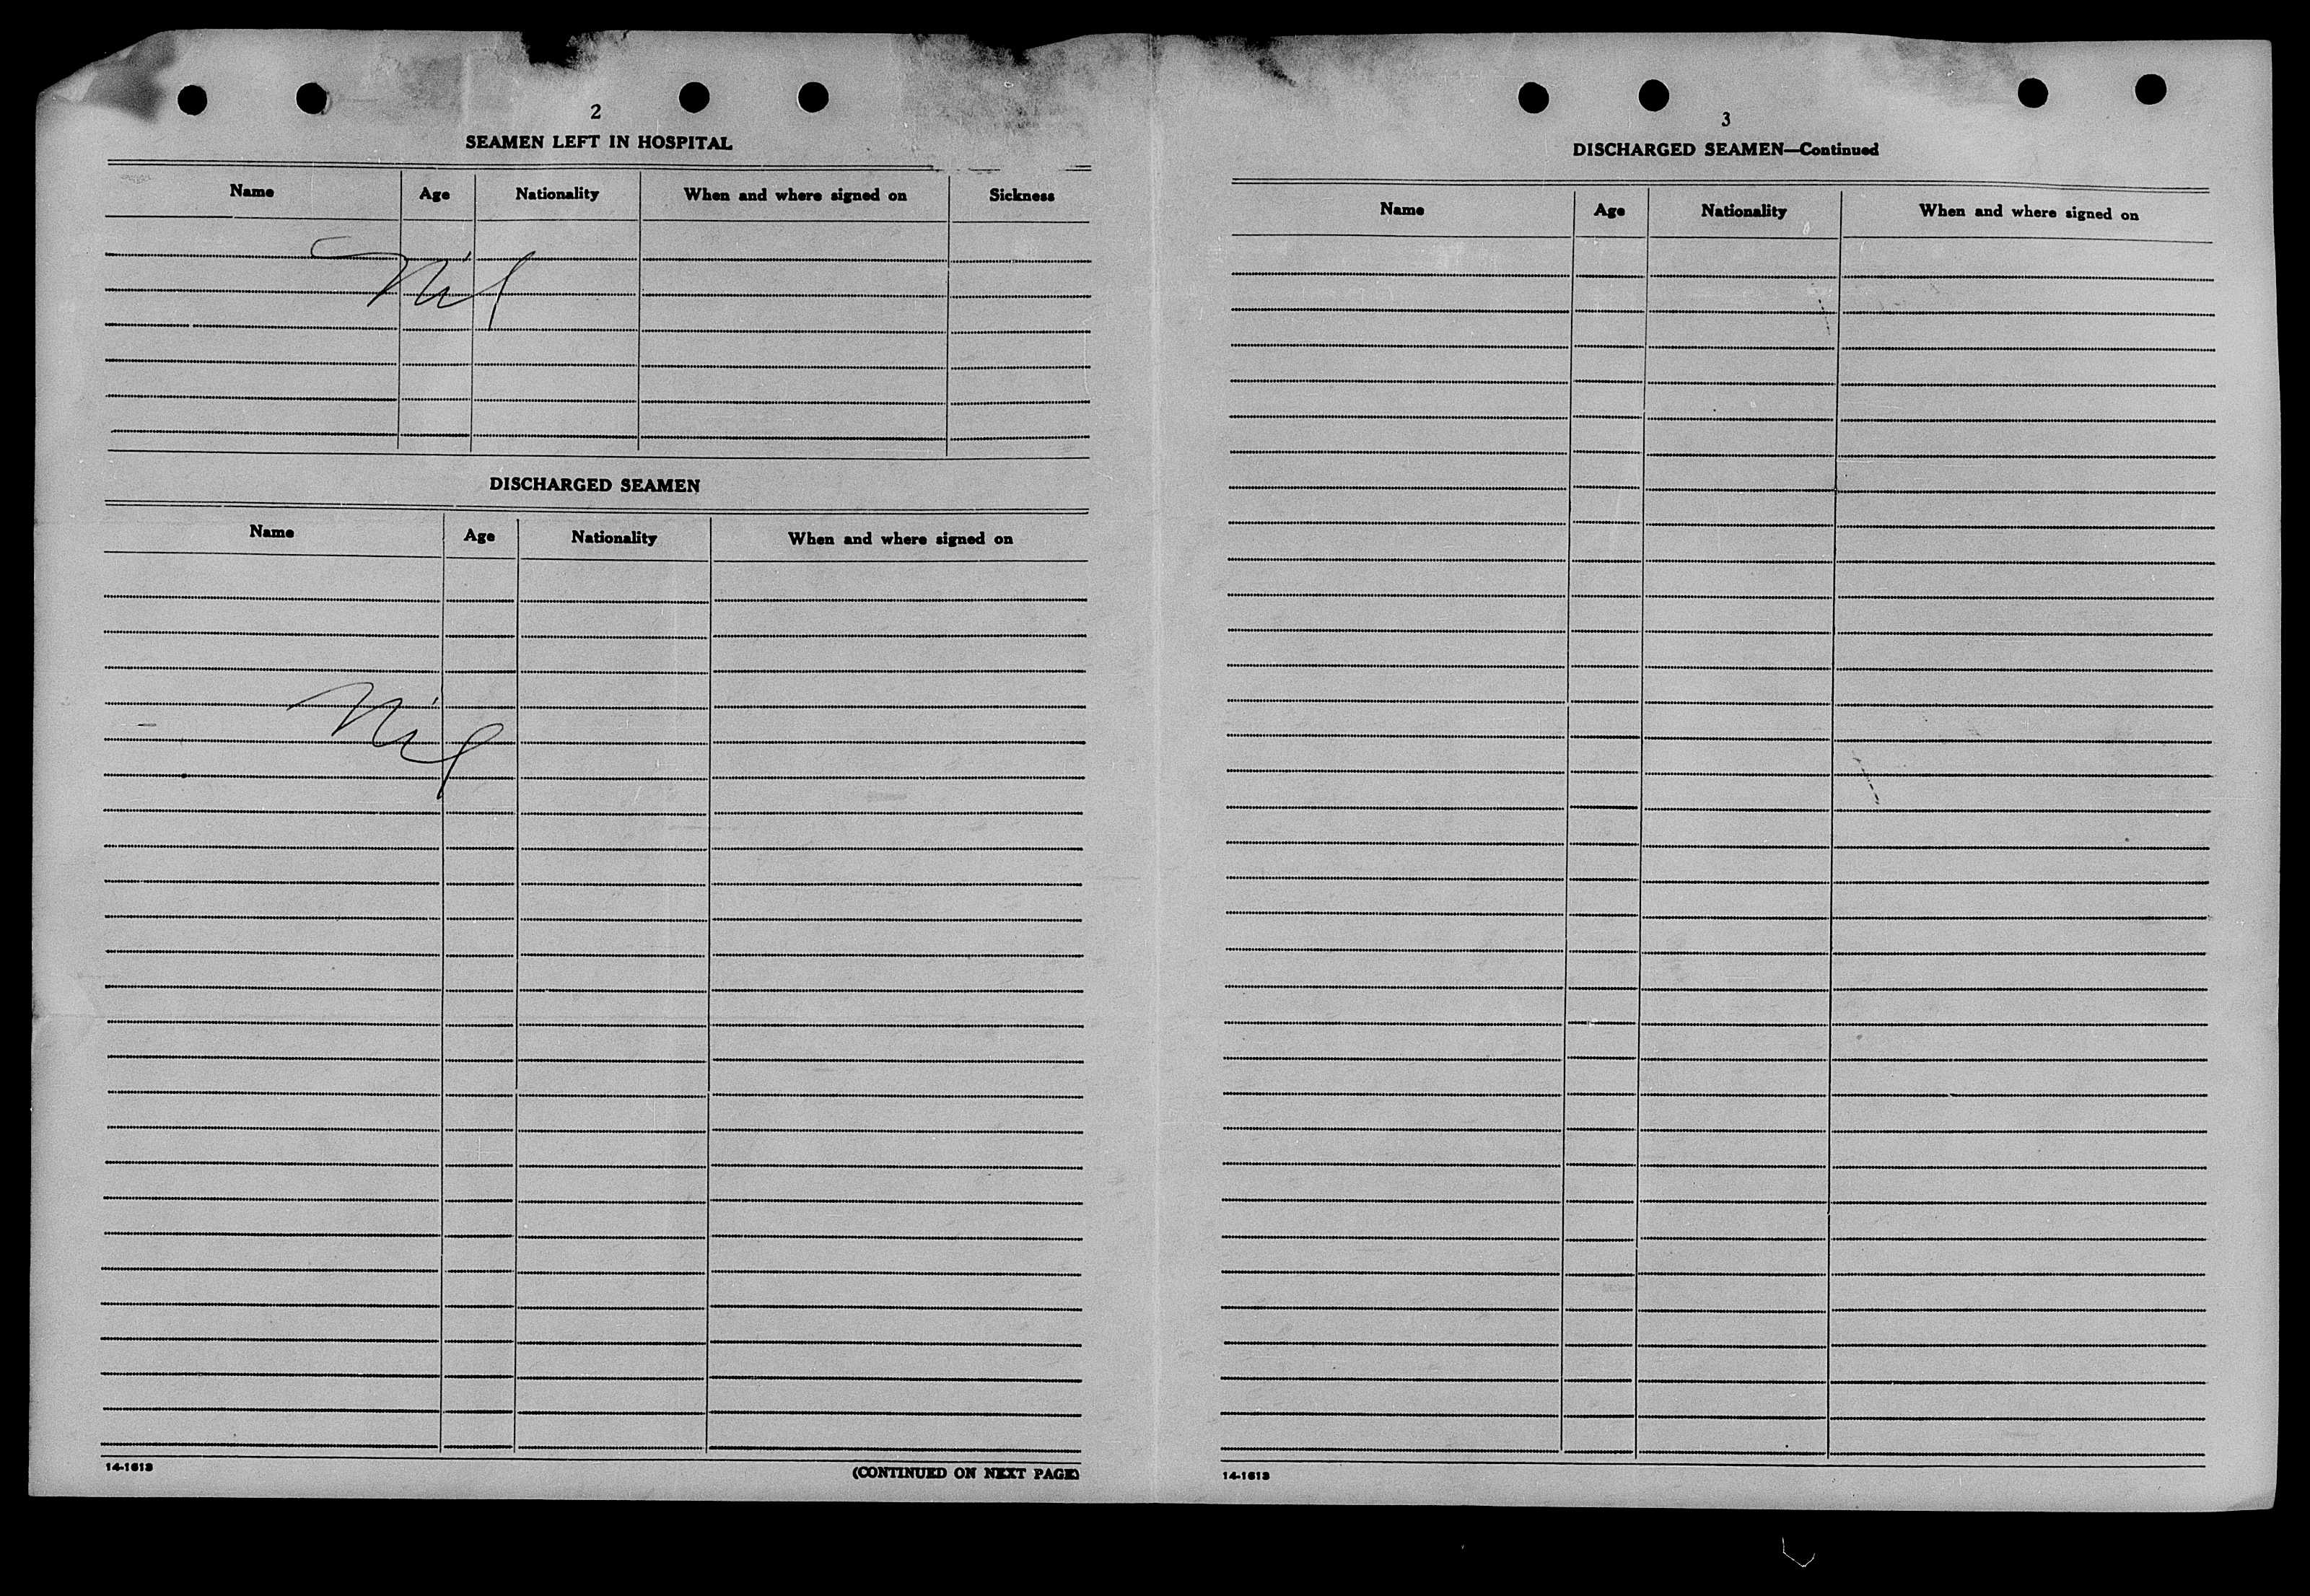 2
SEAMEN LEFT IN HOSPITAL
Name Age Nationality When and where signed on Sickness
Nil
DISCHARGED SEAMEN
Name Age Nationality When and where signed on
Nil
14-1613 (CONTINUED ON NEXT PAGE)
3
DISCHARGED SEAMEN—Continued
Name Age Nationality When and where signed on
14-1613